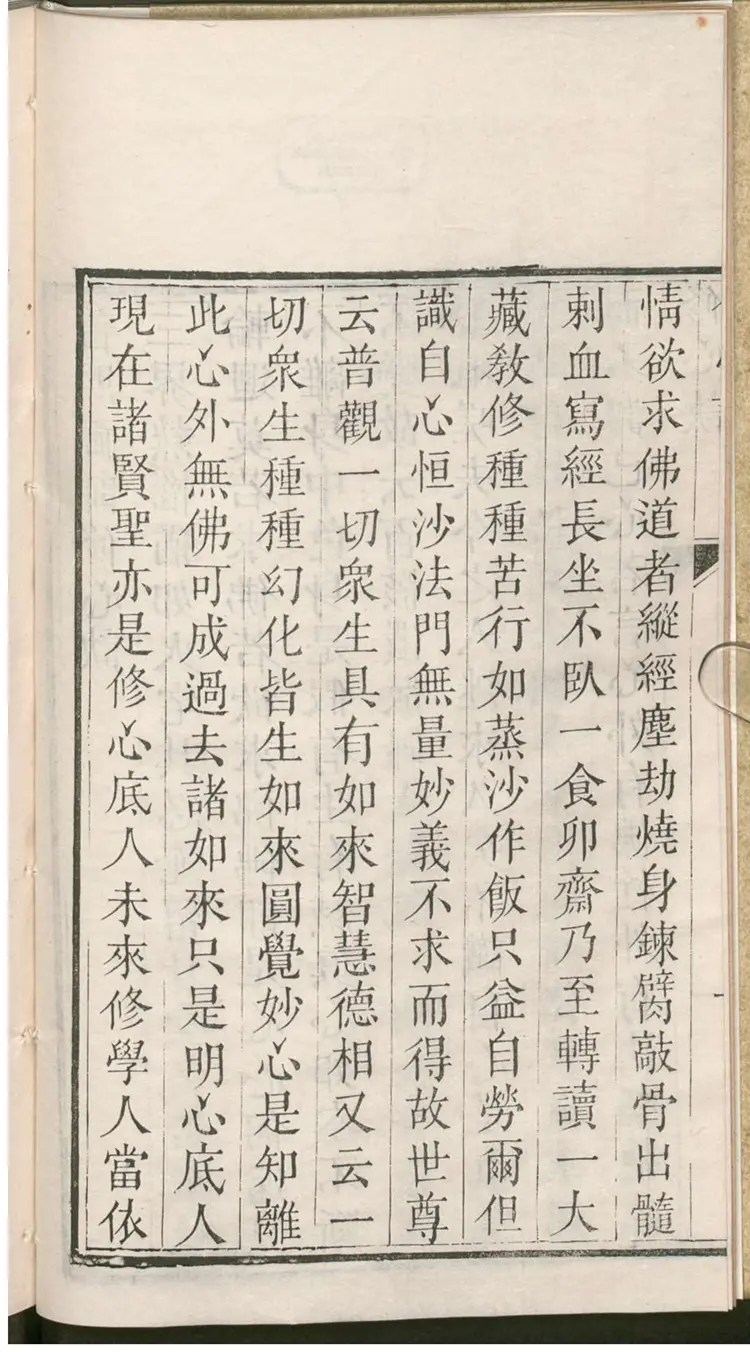 情欲求佛道者縱經塵劫燒身鍊臂敲骨出髓
刺血寫經長坐不臥一食卯齋乃至轉讀一大
藏教修種種苦行如蒸沙作飯只益自勞爾但
識自心恒沙法門無量妙義不求而得故世尊
云普觀一切衆生具有如來智慧德相又云一
切衆生種種幻化皆生如來圓覺妙心是知離
此心外無佛可成過去諸如來只是明心底人
現在諸賢聖亦是修心底人未來修學人當依